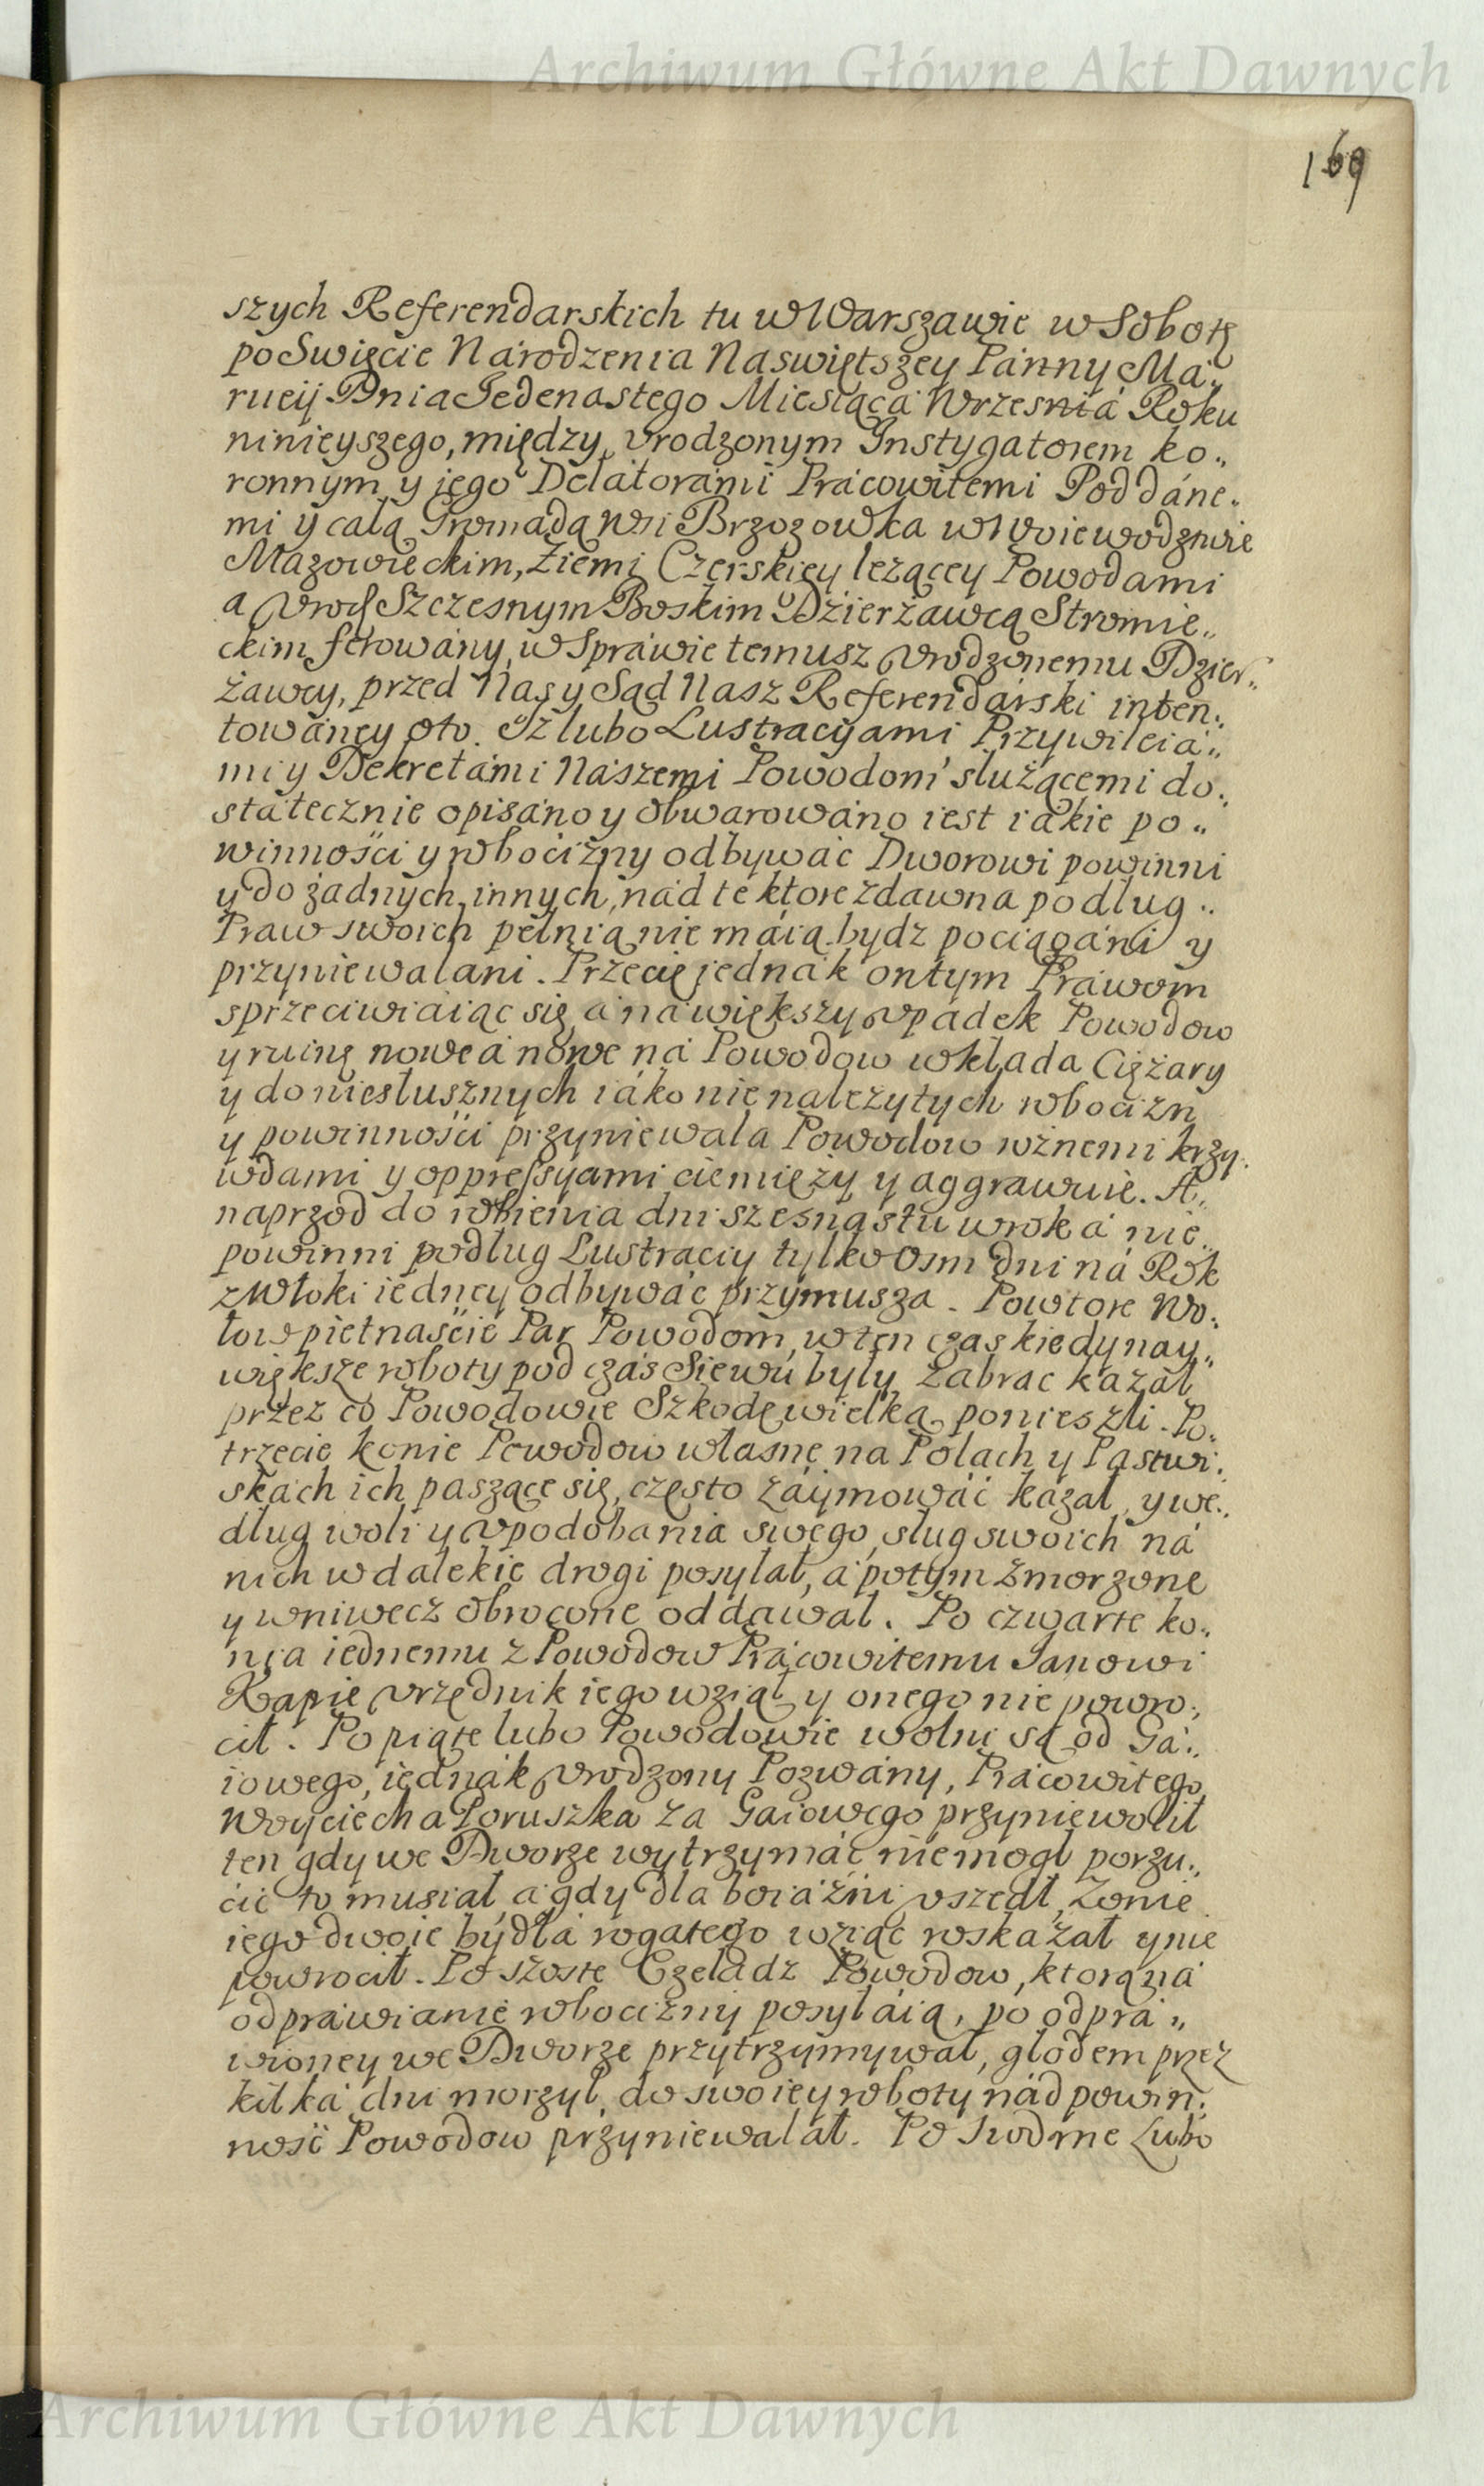 Archiwum Główne Akt Dawnych
169
szych Referendarskich tu w Warszawie w Sobotę
po Swięcie Národzenia Naswiętszey Pánny Má„
ryeij Dnia Jedenastego Miesiąca Wrzesniá Roku
ninieyszego, między Vrodzonym Instygatorem ko„
ronnym y jego Delátorámi Prácowitemi Poddáne„
mi y całą Gromadą wsi Brzozowka w Woiewodztwie
Mazowieckim, Ziemi Czerskiey lezącey Powodami
a Vrodz Szczesnym Boskim Dzierżawcą Stromie„
ckim ferowány, w Spráwie temusz Vrodzonemu Dzier„
żawcy, przed Nas y Sąd Nasz Referendárski inten„
towáney oto. Iż lubo Lustracyami Przywileiá„
mi y Dekretámi Nászemi Powodom służącemi do„
státecznie opisáno y obwarowáno iest iakie po„
winnośći y robocizny odbywáć Dworowi powinni
y do żadnych innych, nád te ktore zdawna podług
Praw swoich pełnią nie máią bydz pociągáni y
przyniewalani. Przecię jednák ontym Práwom
sprzeciwiáiąc się á na większy vpadek Powodow
y ruinę nowe á nowe ná Powodow wkłada Ciężary
y do niesłusznych iáko nie należytych robocizn
y powinnośći przyniewala Powodow rożnemi krzy„
wdami y oppressyami ciemięży y aggrawuie. A„
naprzod do robienia dni szesnástu w roku á nie
powinni podług Lustraciy tylko Osm dni ná Rok
z Włoki iedney odbywáć przymusza. Powtore Wo„
łow piętnaśćie Par Powodom, w ten czas kiedy nay„
większe roboty pod czás Siewu były zabrać kazał
przez co Powodowie Szkodę wielką ponieszli. Po„
trzecie konie Powodow własne na Polach y Pastwi„
skách ich paszące się, często záymowáć kázał, y we„
dług woli y vpodobania swego, sług swoich ná
nich w dalekie drogi posyłał, á potym zmorzone
y wniwecz obrocone oddawał. Po czwarte ko„
nia iednemu z Powodow Prácowitemu Janowi
Kapie Vrzędnik iego wziął y onego nie powro„
cił. Po piąte lubo Powodowie wolni są od Gá„
iowego, iednák Vrodzony Pozwány, Prácowitego
Woyciecha Poruszka za Gaiowego przyniewolił
ten gdy we Dworze wytrzymáć nie mogł porzu„
cić to musiał, á gdy dla boiáźni vszedł, Zonie
iego dwoie bydłá rogatego wziąć roskazał y nie
powrocił. Po szoste Czeládz Powodow, ktorą ná
odpráwianie robocizny posyłáią, po odprá„
wioney we Dworze przytrzymywał, głodem przez
kilká dni morzył, do swoiey roboty nád powin„
ność Powodow przyniewalał. Po siodme Lubo
Archiwum Główne Akt Dawnych